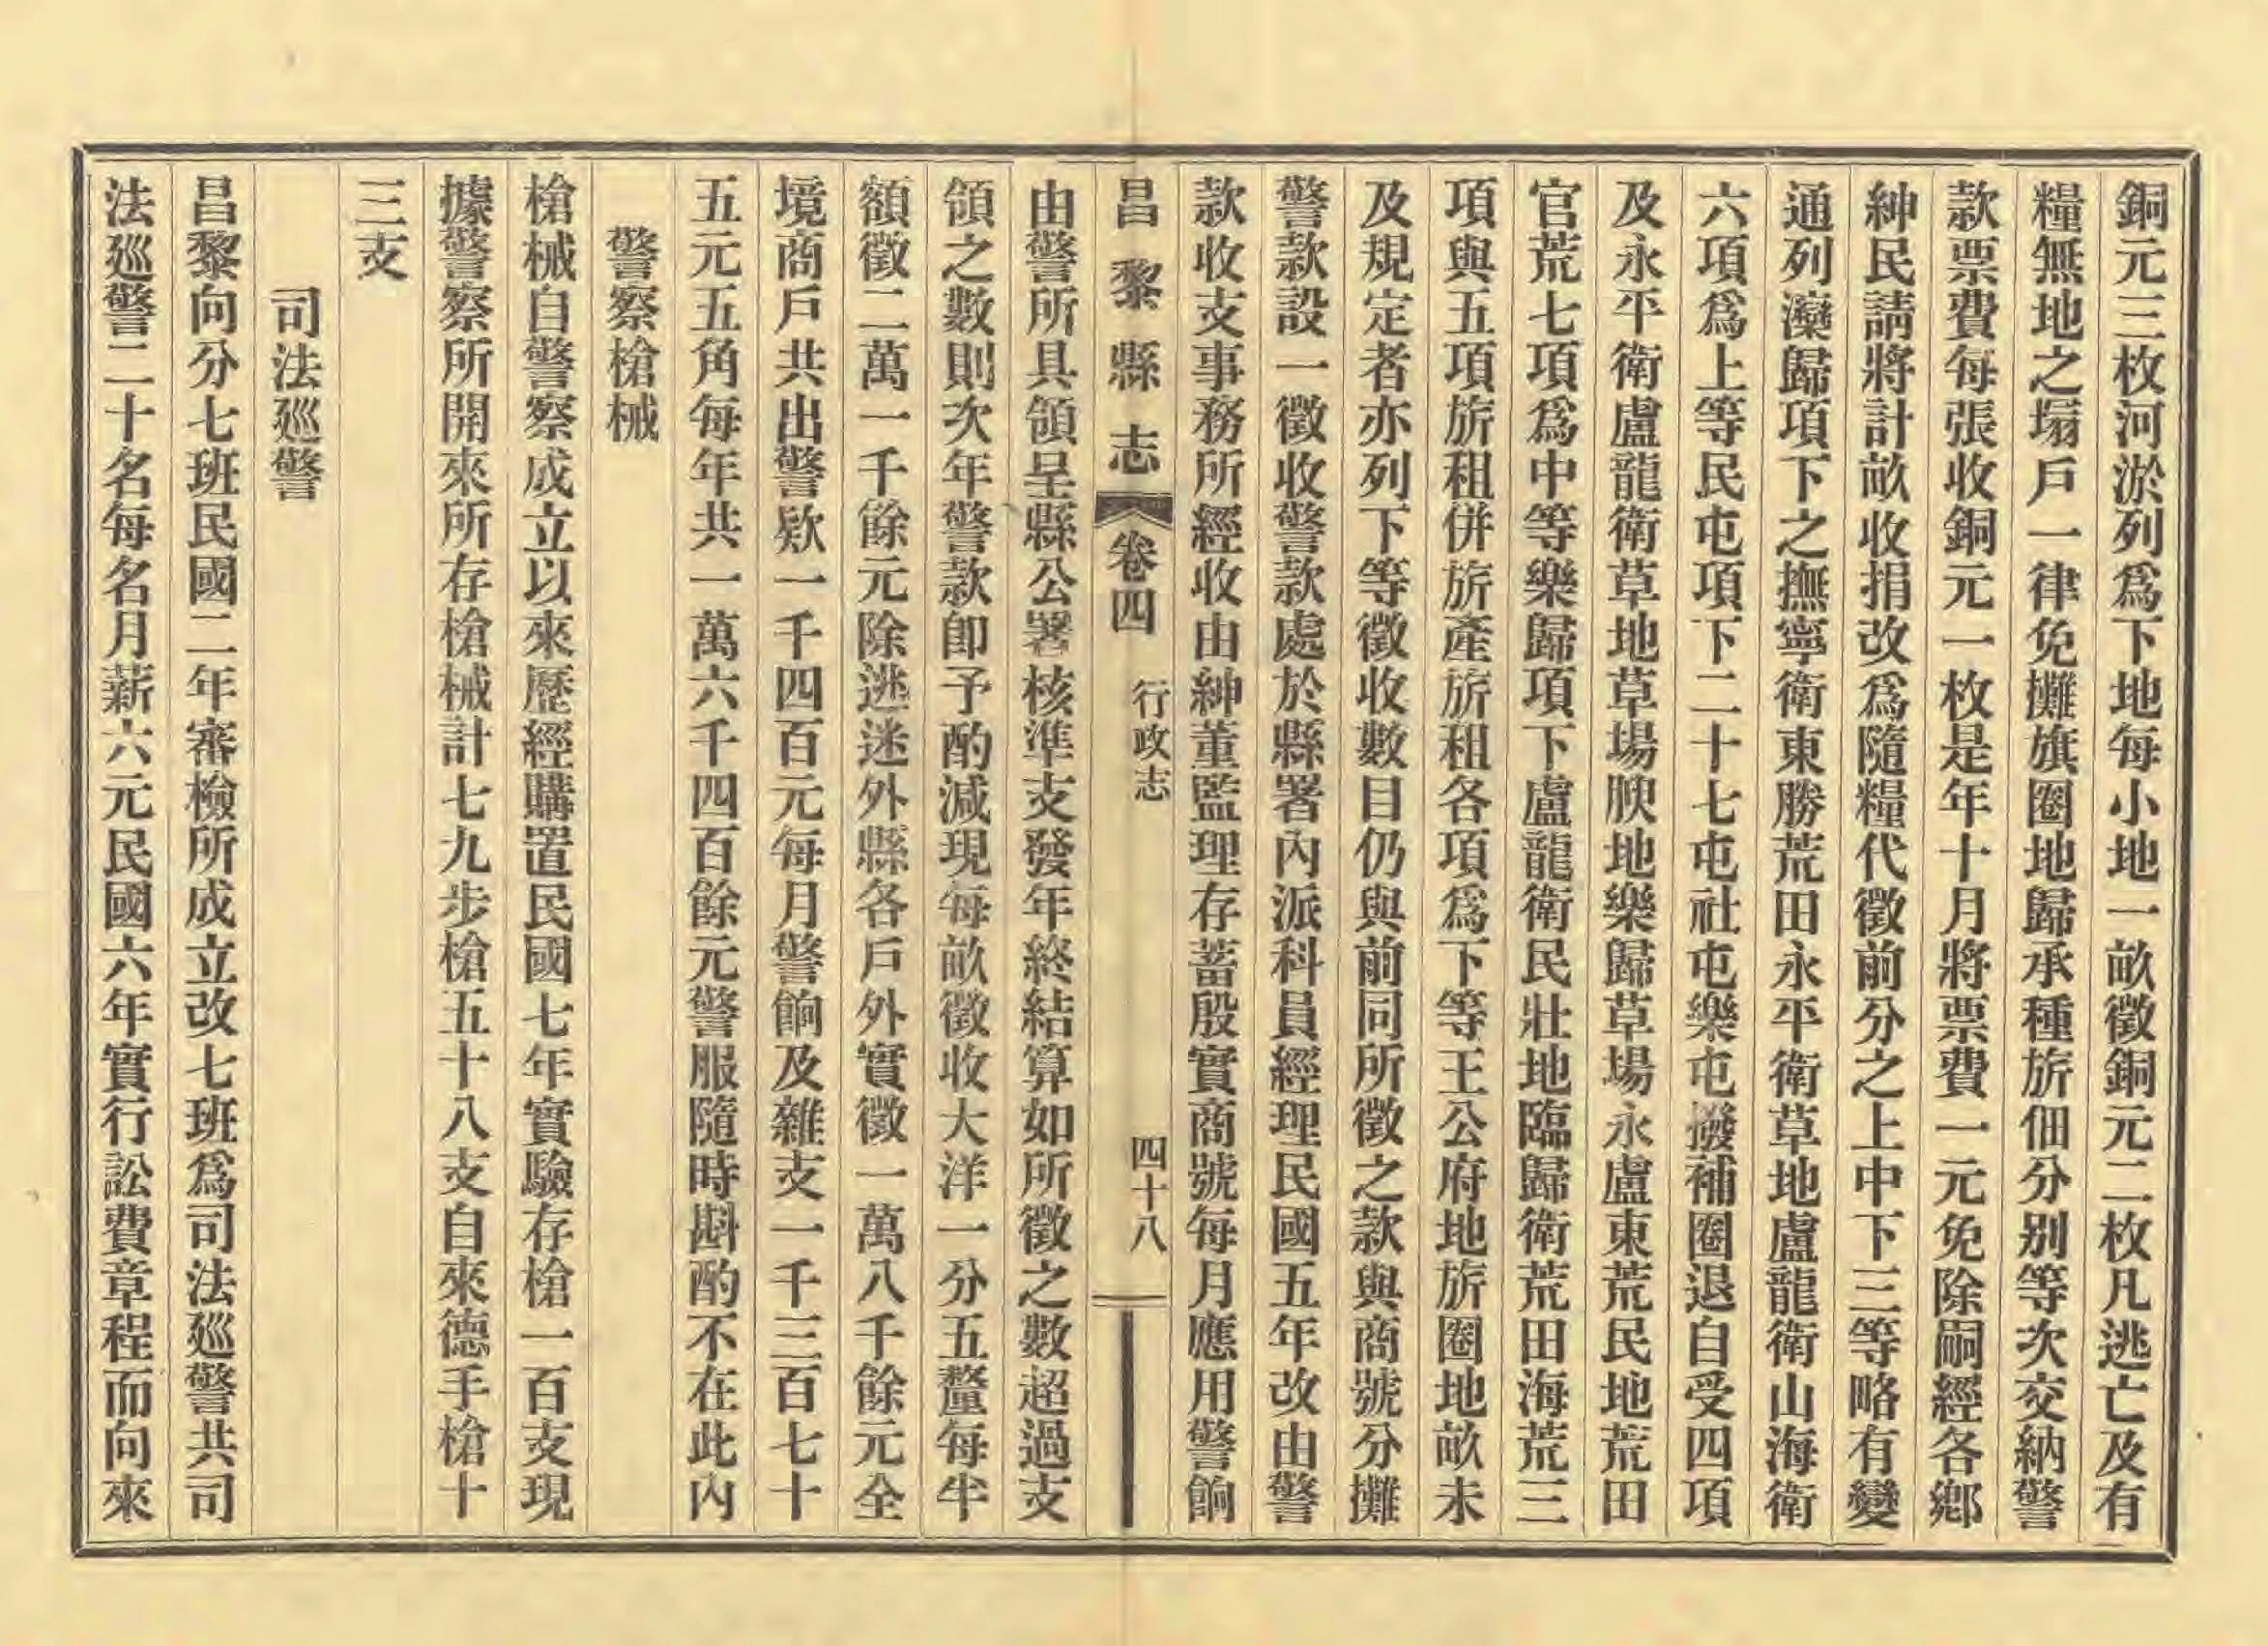 銅元三枚河淤列爲下地每小地一畝徵銅元二枚凡逃亡及有
糧無地之塌戶一律免攤旗圈地歸承種旂佃分别等次交納警
款票費每張收銅元一枚是年十月將票費一元免除嗣經各鄕
紳民請將計畝收捐改爲隨糧代徵前分之上中下三等略有變
通列灤歸項下之撫寧衛東勝荒田永平衛草地盧龍衛山海衛
六項爲上等民屯項下二十七屯社屯樂屯撥補圈退自受四項
及永平衛盧龍衛草地草場腴地樂歸草場永盧東荒民地荒田
官荒七項爲中等樂歸項下盧龍衛民壯地臨歸衛荒田海荒三
項與五項旂租併旂產旂租各項爲下等王公府地旂圈地畝未
及規定者亦列下等徵收數目仍與前同所徵之款與商號分攤
警款設一徵收警款處於縣署內派科員經理民國五年改由警
款收支事務所經收由紳董監理存蓄殷實商號每月應用警餉
昌黎縣志 卷四 行政志 四十八
由警所具領呈縣公署核準支發年終結算如所徵之數超過支
領之數則次年警款卽予酌減現每畝徵收大洋一分五釐每年
額徵二萬一千餘元除逃迷外縣各戶外實徵一萬八千餘元全
境商戶共出警欵一千四百元每月警餉及雜支一千三百七十
五元五角每年共一萬六千四百餘元警服隨時斟酌不在此內
警察槍械
槍械自警察成立以來歷經購置民國七年實驗存槍一百支現
據警察所開來所存槍械計七九步槍五十八支自來德手槍十
三支
司法巡警
昌黎向分七班民國二年審檢所成立改七班爲司法巡警共司
法巡警二十名每名月薪六元民國六年實行訟費章程而向來